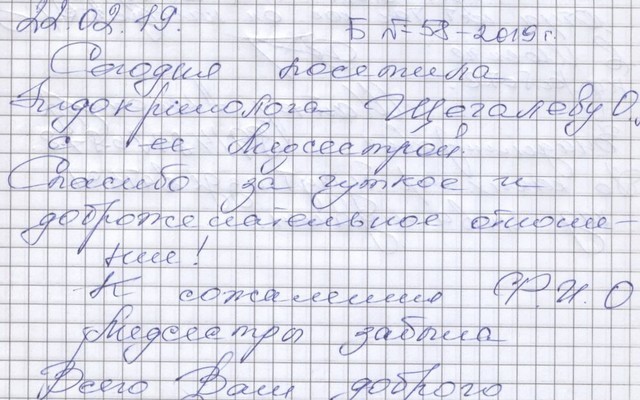 22.02.19. Б № 58-2019 г.
Сегодня посетила
Эндокринолога Щегалеву О.
с ее Медсестрой.
Спасибо за чуткое и
доброжелательное отноше-
ние!
К сожалению Ф.И.О
Медсестры забыла
Всего Вам доброго